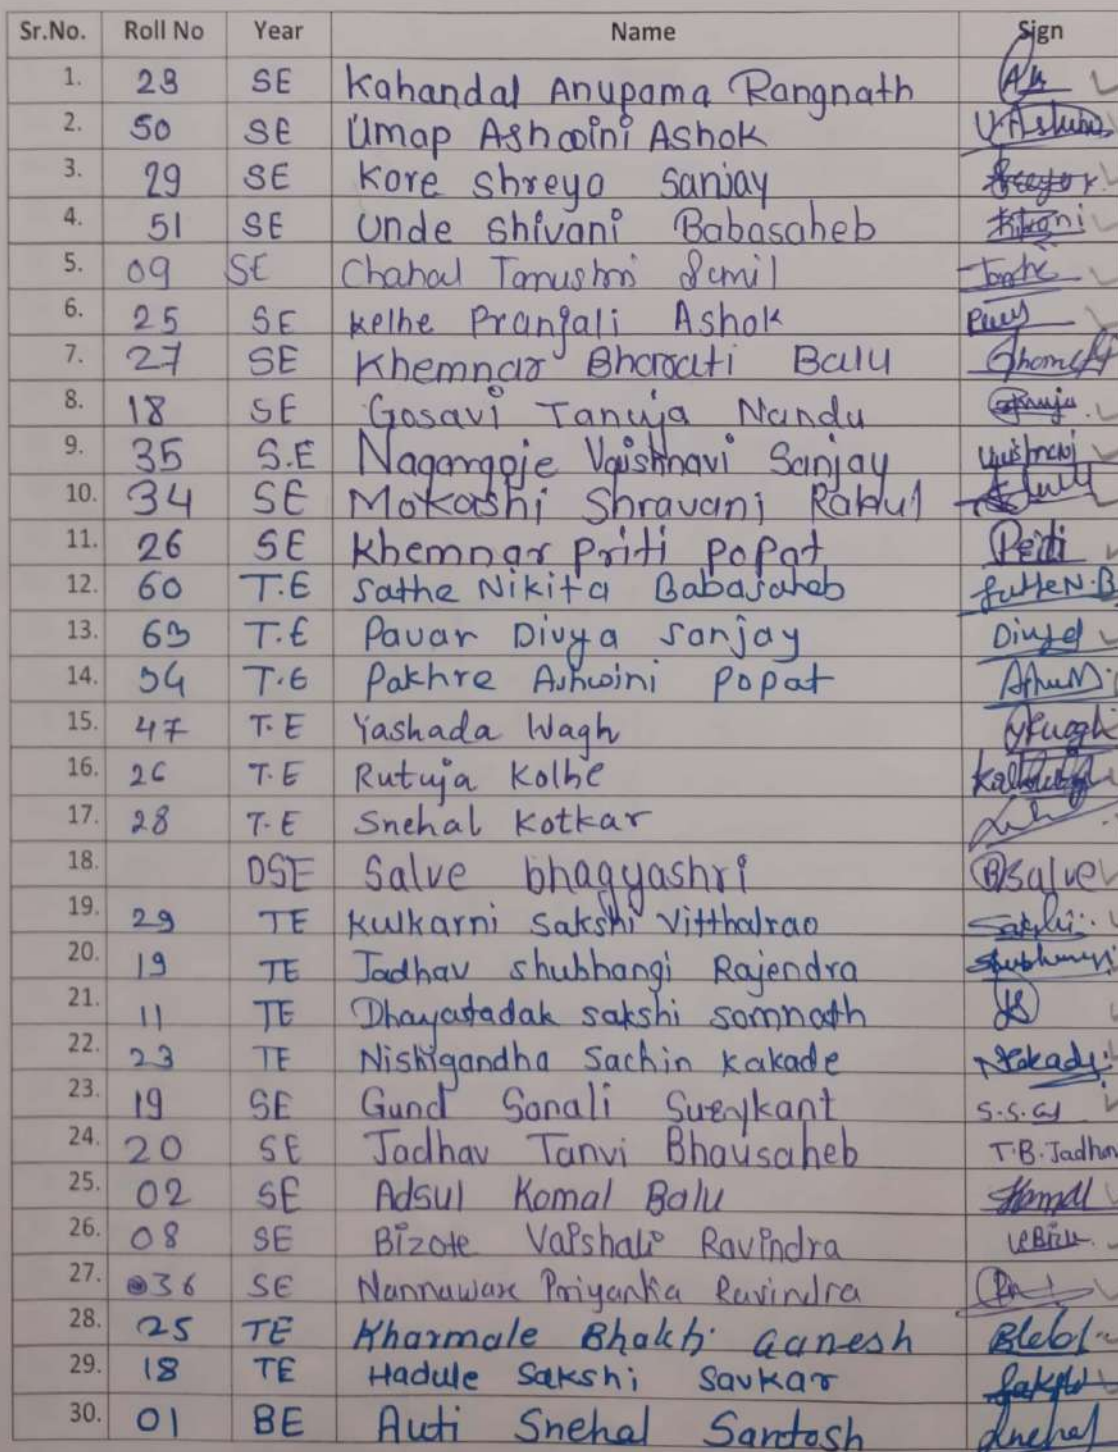 Sr.No. Roll No Year Name Sign
1. 23 SE Kahandal Anupama Rangnath
2. 50 SE Umap Ashwini Ashok
3. 29 SE Kore Shreya Sanjay
4. 51 SE Unde Shivani Babasaheb
5. 09 SE Chahal Tanushri
6. 25 SE Kelhe Pranjali Ashok
7. 27 SE Khemnar Bharati Balu
8. 18 SE Gosavi Tanuja Nandu
9. 35 S.E Nagargoje Vaishnavi Sanjay Vaishnavi
10. 34 SE Mokashi Shravani Rahul
11. 26 SE Khemnar Priti Popat Priti
12. 60 T.E Sathe Nikita Babasaheb Sathe N.B
13. 63 T.E Pavar Divya Sanjay Divya
14. 54 T.E Pakhre Ashwini Popat
15. 47 T.E Yashada Wagh
16. 26 T.E Rutuja Kolhe
17. 28 T.E Snehal Kotkar
18. DSE Salve bhagyashri BSalve
19. 29 TE Kulkarni Sakshi Vitthalrao Sakshi
20. 19 TE Jadhav Shubhangi Rajendra Shubhangi
21. 11 TE Dhayatadak sakshi somnath
22. 23 TE Nishigandha Sachin Kakade
23. 19 SE Gund Sonali Sueykant S.S.G
24. 20 SE Jadhav Tanvi Bhausaheb T.B.Jadhav
25. 02 SE Adsul Komal Balu Komal
26. 08 SE Bizote Vaishali Ravindra
27. 36 SE Nannaware Priyanka Ravindra
28. 25 TE Kharmale Bhakti Ganesh
29. 18 TE Hadule Sakshi Savkar Sakshi
30. 01 BE Auti Snehal Santosh Snehal